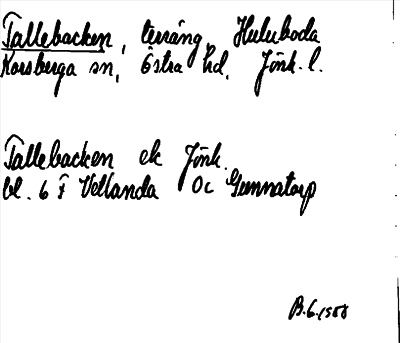 Tallebacken, terräng, Huluboda
Korsberga sn, Östra hd, Jönk. l.
Tallebacken ek Jönk.
bl. 6 F Vetlanda Oc Gunnatorp
B.6.1958